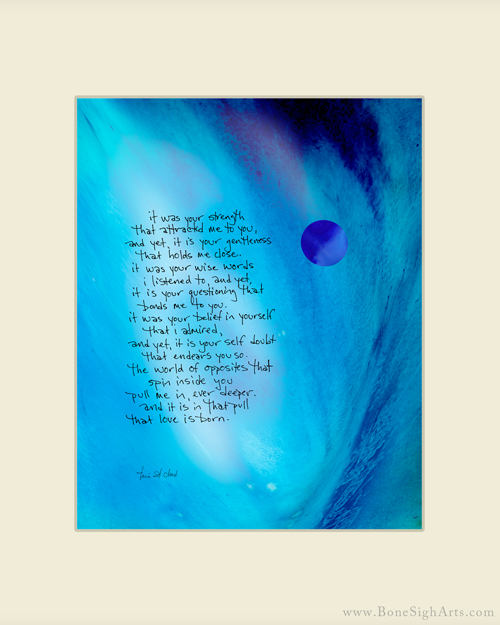 it was your strength
that attracted me to you,
and yet, it is your gentleness
that holds me close.
it was your wise words
i listened to, and yet,
it is your questioning that
bonds me to you.
it was your belief in yourself
that i admired,
and yet, it is your self doubt
that endears you so.
the world of opposites that
spin inside you
pull me in, ever deeper.
and it is in that pull
that love is born.
terri st. cloud
www.BoneSighArts.com